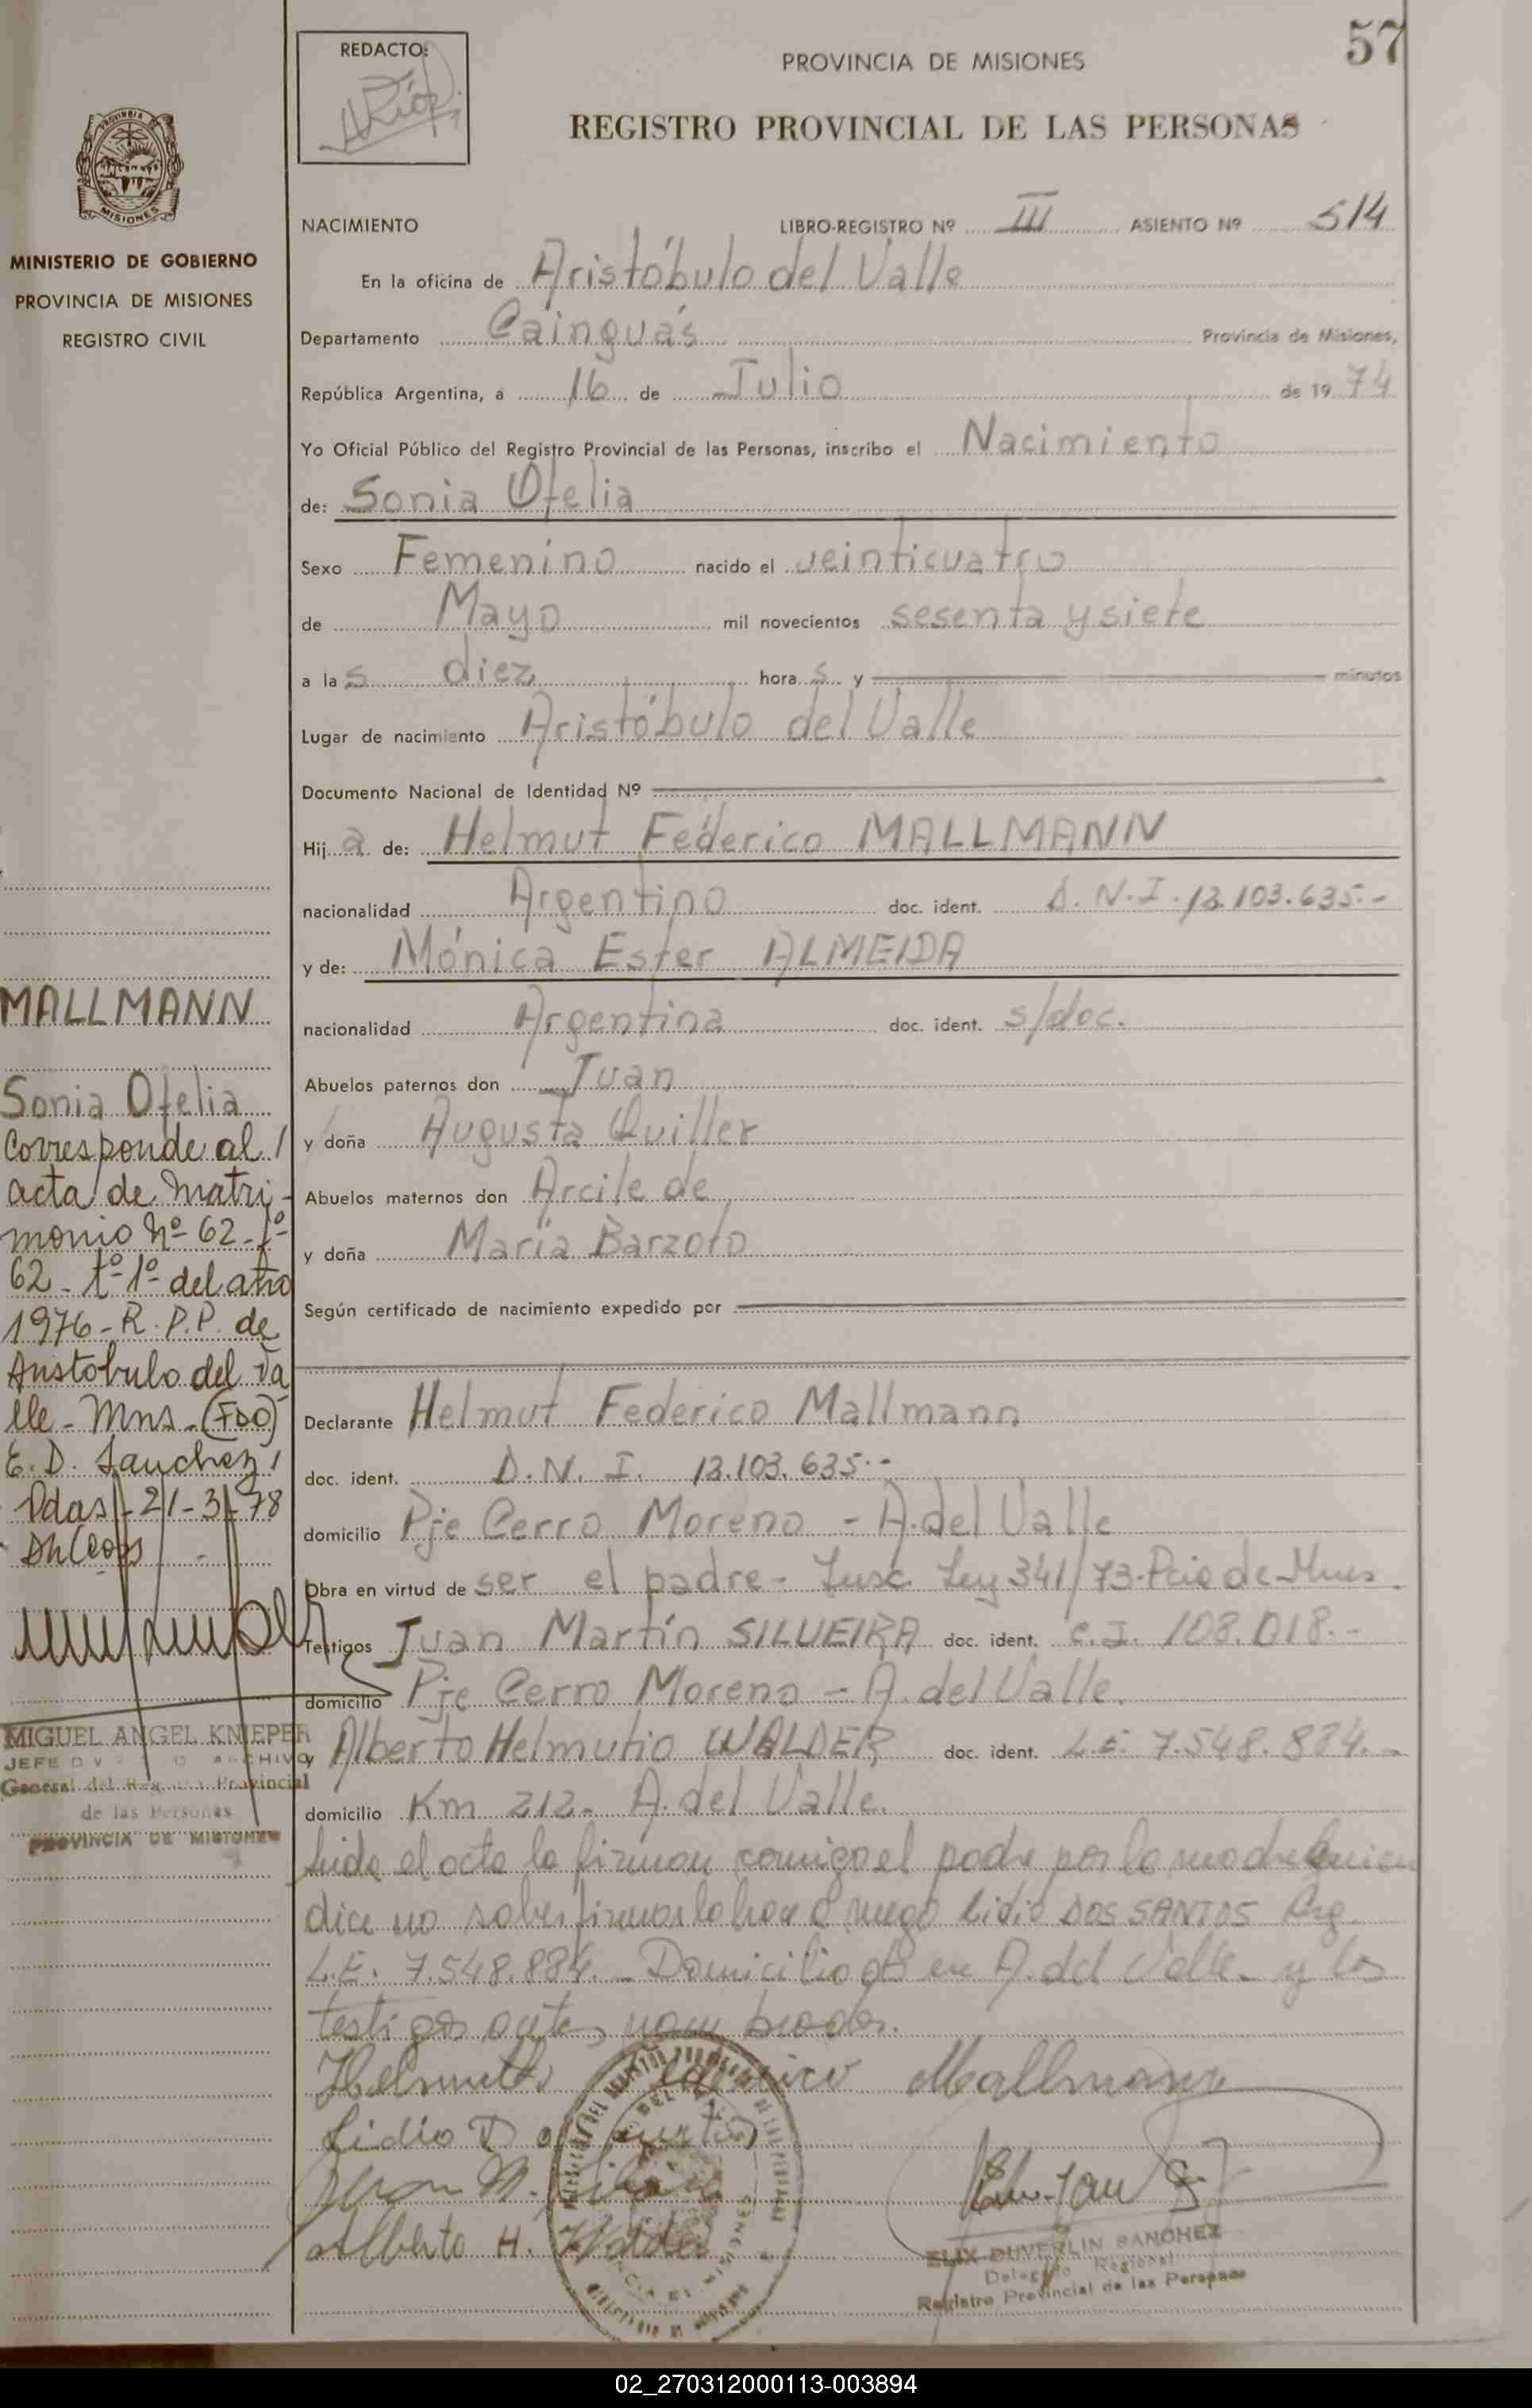 57
REDACTO:
PROVINCIA DE MISIONES
REGISTRO PROVINCIAL DE LAS PERSONAS
MISIONES
MINISTERIO DE GOBIERNO
PROVINCIA DE MISIONES
REGISTRO CIVIL
NACIMIENTO LIBRO-REGISTRO Nº III ASIENTO Nº 514
En la oficina de Aristóbulo del Valle
Departamento Cainguás Provincia de Misiones,
República Argentina, a 16 de Julio de 1974
Yo Oficial Público del Registro Provincial de las Personas, inscribo el Nacimiento
de: Sonia Ofelia
Sexo Femenino nacido el veinticuatro
de Mayo mil novecientos sesenta y siete
a las diez horas y minutos
Lugar de nacimiento Aristóbulo del Valle
Documento Nacional de Identidad Nº
Hija de: Helmut Federico MALLMANN
nacionalidad Argentino doc. ident. D.N.I. 13.103.635.-
y de: Mónica Ester ALMEIDA
nacionalidad Argentina doc. ident. s/doc.
Abuelos paternos don Juan
y doña Augusta Quiller
Abuelos maternos don Arcile de
y doña María Barzoto
Según certificado de nacimiento expedido por
Declarante Helmut Federico Mallmann
doc. ident. D.N.I. 13.103.635.-
domicilio Pje Cerro Moreno - A. del Valle
Obra en virtud de ser el padre - Insc. Ley 341/73-Pcia de Mnes.
Testigos Juan Martín SILVEIRA doc. ident. C.I. 108.018.-
domicilio Pje Cerro Moreno - A. del Valle.
y Alberto Helmutio WALDER doc. ident. L.E. 7.548.884.-
domicilio Km 212- A. del Valle.
Leida el acta la firman conmigo el padre por la madre quien
dice no saber firmar lo hace a ruego Lidio DOS SANTOS Arg.
L.E. 7.548.884.- Domicilio en A. del Valle- y los
testigos antes nombrados.
Helmuth Federico Mallmann
Lidio D
Juan M.
Alberto H. Walder
ELIX DUVERLIN SANCHEZ
Delegado Regional
Registro Provincial de las Personas
MALLMANN
Sonia Ofelia
Corresponde al
acta de matri-
monio Nº 62-fº
62- tº 1º del año
1976- R.P.P. de
Aristobulo del Va
lle- Mns-(FDO)
E. D. Sanchez
Pdas-21-3-78
MIGUEL ANGEL KNIEPER
JEFE ARCHIVO
General del Registro Provincial
de las Personas
PROVINCIA DE MISIONES
02_270312000113-003894